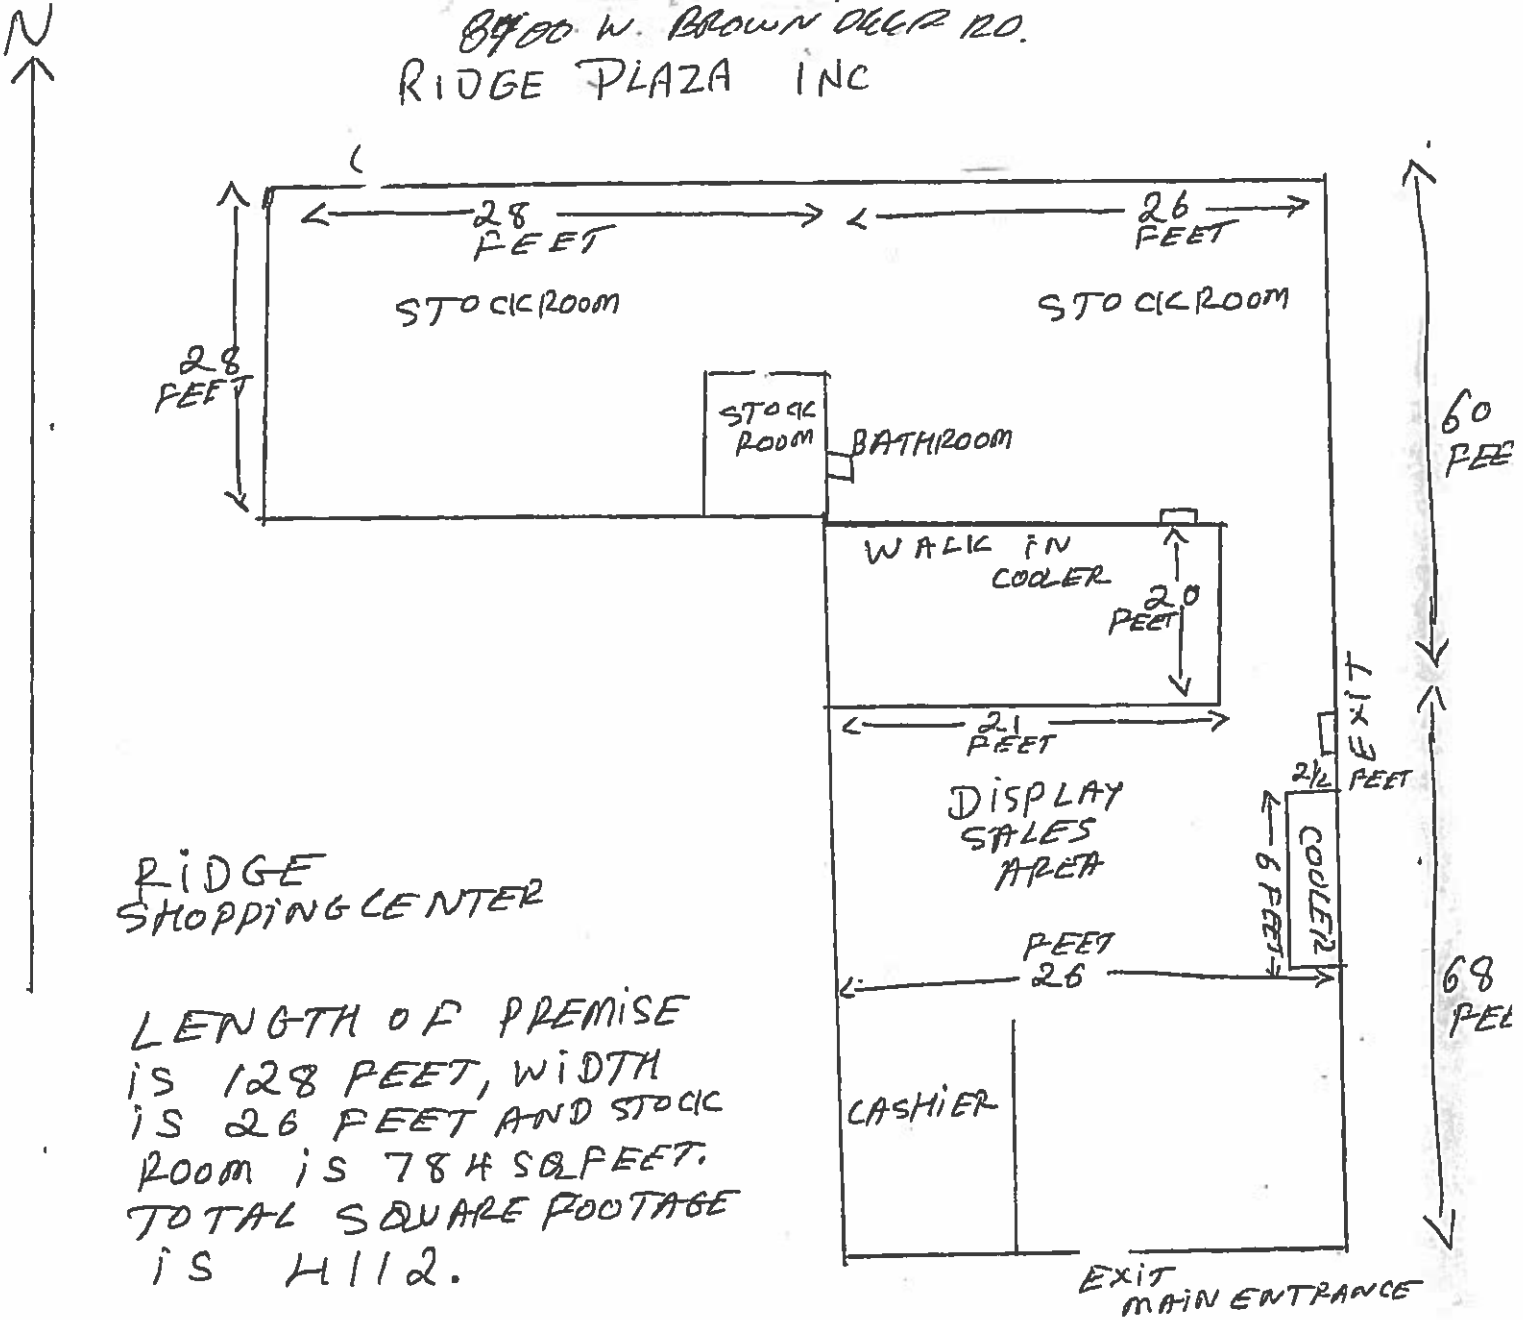 N
8700 W. BROWN DEER RD.
RIDGE PLAZA INC
28
FEET
26
FEET
STOCKROOM
STOCKROOM
28
FEET
STOCK
ROOM
BATHROOM
60
FEE
WALK IN
COOLER
20
FEET
21
FEET
EXIT
2 1/2 FEET
DISPLAY
SALES
AREA
6 FEET
COOLER
RIDGE
SHOPPING CENTER
FEET
26
68
FEE
LENGTH OF PREMISE
IS 128 FEET, WIDTH
IS 26 FEET AND STOCK
ROOM IS 784 SQ FEET.
TOTAL SQUARE FOOTAGE
IS 4112.
CASHIER
EXIT
MAIN ENTRANCE